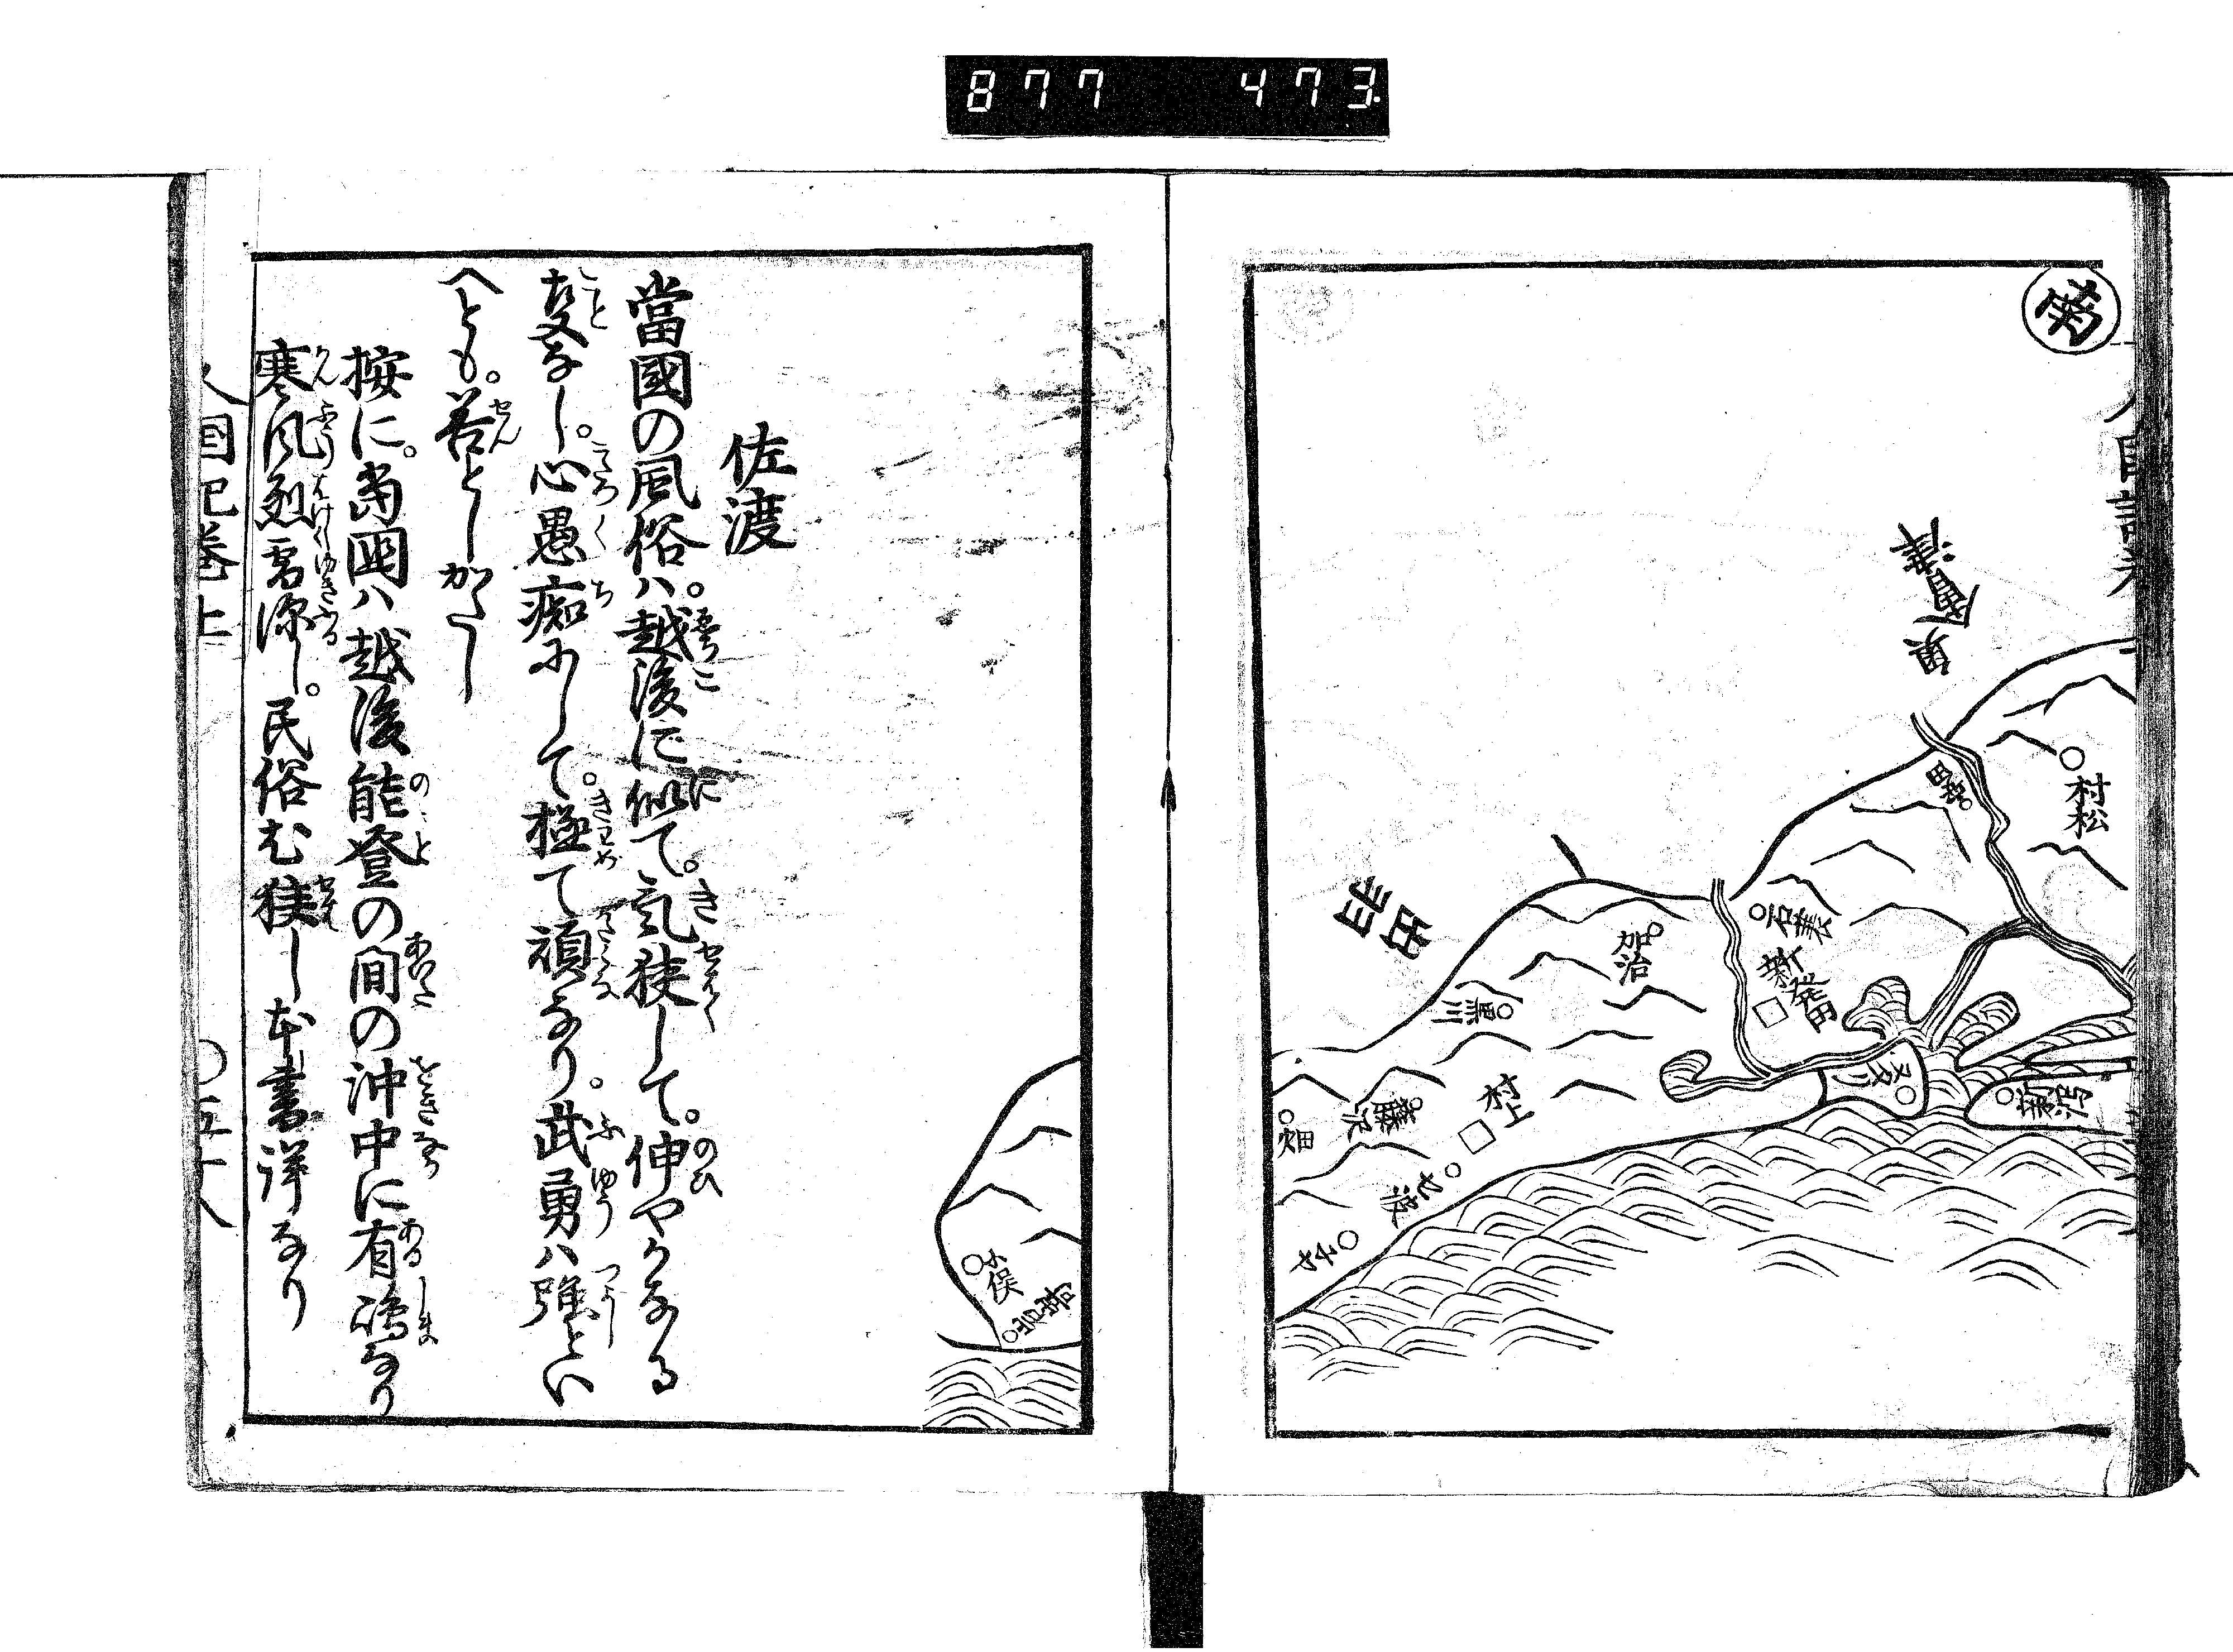 877 473
南
奥會津
村松
出羽
加治
新発田
黒川
村上
新潟
藤沢
せ波
小俣
佐渡
當國の風俗ハ。越後に似て。気狭して。伸やかなる
事なし。心愚痴にして。極て頑なり。武勇ハ強しとい
へとも。善としかたし
按に。當国ハ越後能登の間の沖中に有嶋なり
寒風烈雪深し。民俗も狭し本書詳なり
人国記巻上
〇五十八